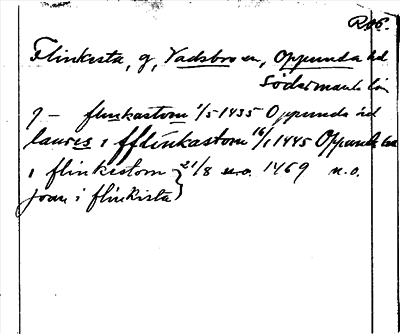 R06.
Flinkesta, g, Vadsbro sn, Oppunda hd
Södermanl. län
J – flinkastom 1/5 1435 Oppunda hd
laures i fflinkastom 16/1 1445 Oppunda
i flinkestom } 21/8 u.o. 1469 u.o.
joan i flinkista